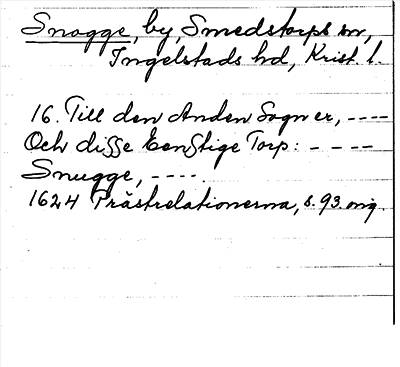 Snogge, by, Smedstorps sn,
Ingelstads hd, Krist. l.
16. Till den Anden Sogner, ----
Och disse Eenstige Torp: - - - -
Snugge, ----.
1624 Prästrelationerna, s. 93. orig.